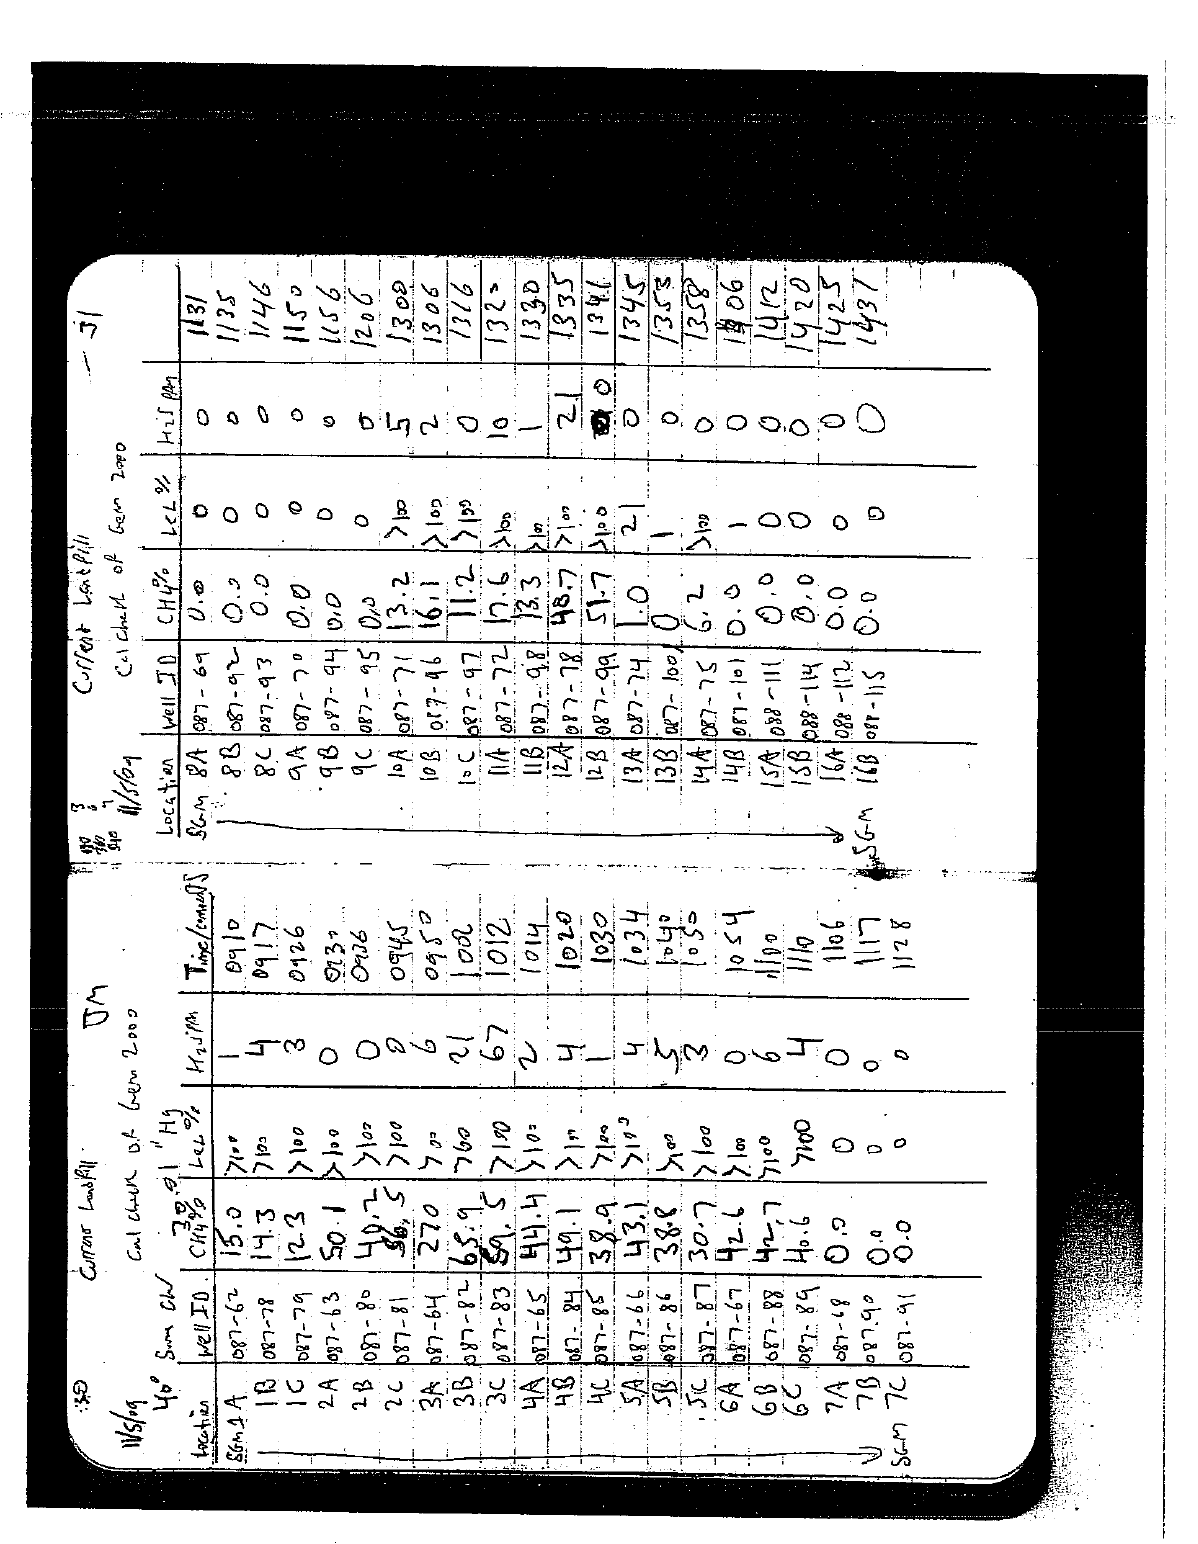 30 Current Landfill JM
11/5/09 Cal check of Gem 2000
40° 30.01 "Hg
Location Well ID CH4% LEL % H2S PPM Time/comments
SGM 1A 087-62 15.0 >100 1 0910
1B 087-78 14.3 >100 4 0917
1C 087-79 12.3 >100 3 0926
2A 087-63 50.1 >100 0 0930
2B 087-80 40.2 >100 0 0936
2C 087-81 >100 0 0945
3A 087-64 27.0 >100 6 0950
3B 087-82 65.9 >100 21 1002
3C 087-83 59.5 >100 67 1012
4A 087-65 44.4 >100 2 1014
4B 087-84 49.1 >100 4 1020
4C 087-85 38.9 >100 1 1030
5A 087-66 43.1 >100 4 1034
5B 087-86 38.8 >100 5 1040
5C 087-87 30.7 >100 3 1050
6A 087-67 42.6 >100 0 1054
6B 087-88 42.7 >100 6 1100
6C 087-89 40.6 >100 4 1110
7A 087-68 0.0 0 0 1106
7B 087-90 0.0 0 0 1117
SGM 7C 087-91 0.0 0 0 1128
Current Landfill 31
11/5/09 Cal check of Gem 2000
Location Well ID CH4% LEL % H2S PPM
SGM 8A 087-69 0.0 0 0 1131
8B 087-92 0.0 0 0 1135
8C 087-93 0.0 0 0 1146
9A 087-70 0.0 0 0 1150
9B 087-94 0.0 0 0 1156
9C 087-95 0.0 0 0 1206
10A 087-71 13.2 >100 5 1300
10B 087-96 16.1 >100 2 1306
10C 087-97 11.2 >100 0 1316
11A 087-72 17.6 >100 10 1320
11B 087-98 13.3 >100 1 1330
12A 087-78 48.7 >100 21 1335
12B 087-99 51.7 >100 0 1341
13A 087-74 1.0 21 0 1345
13B 087-100 0 1 0 1353
14A 087-75 6.2 >100 0 1358
14B 087-101 0.0 1 0 1406
15A 088-111 0.0 0 0 1412
15B 088-114 0.0 0 0 1420
16A 088-112 0.0 0 0 1425
SGM 16B 088-115 0.0 0 0 1431